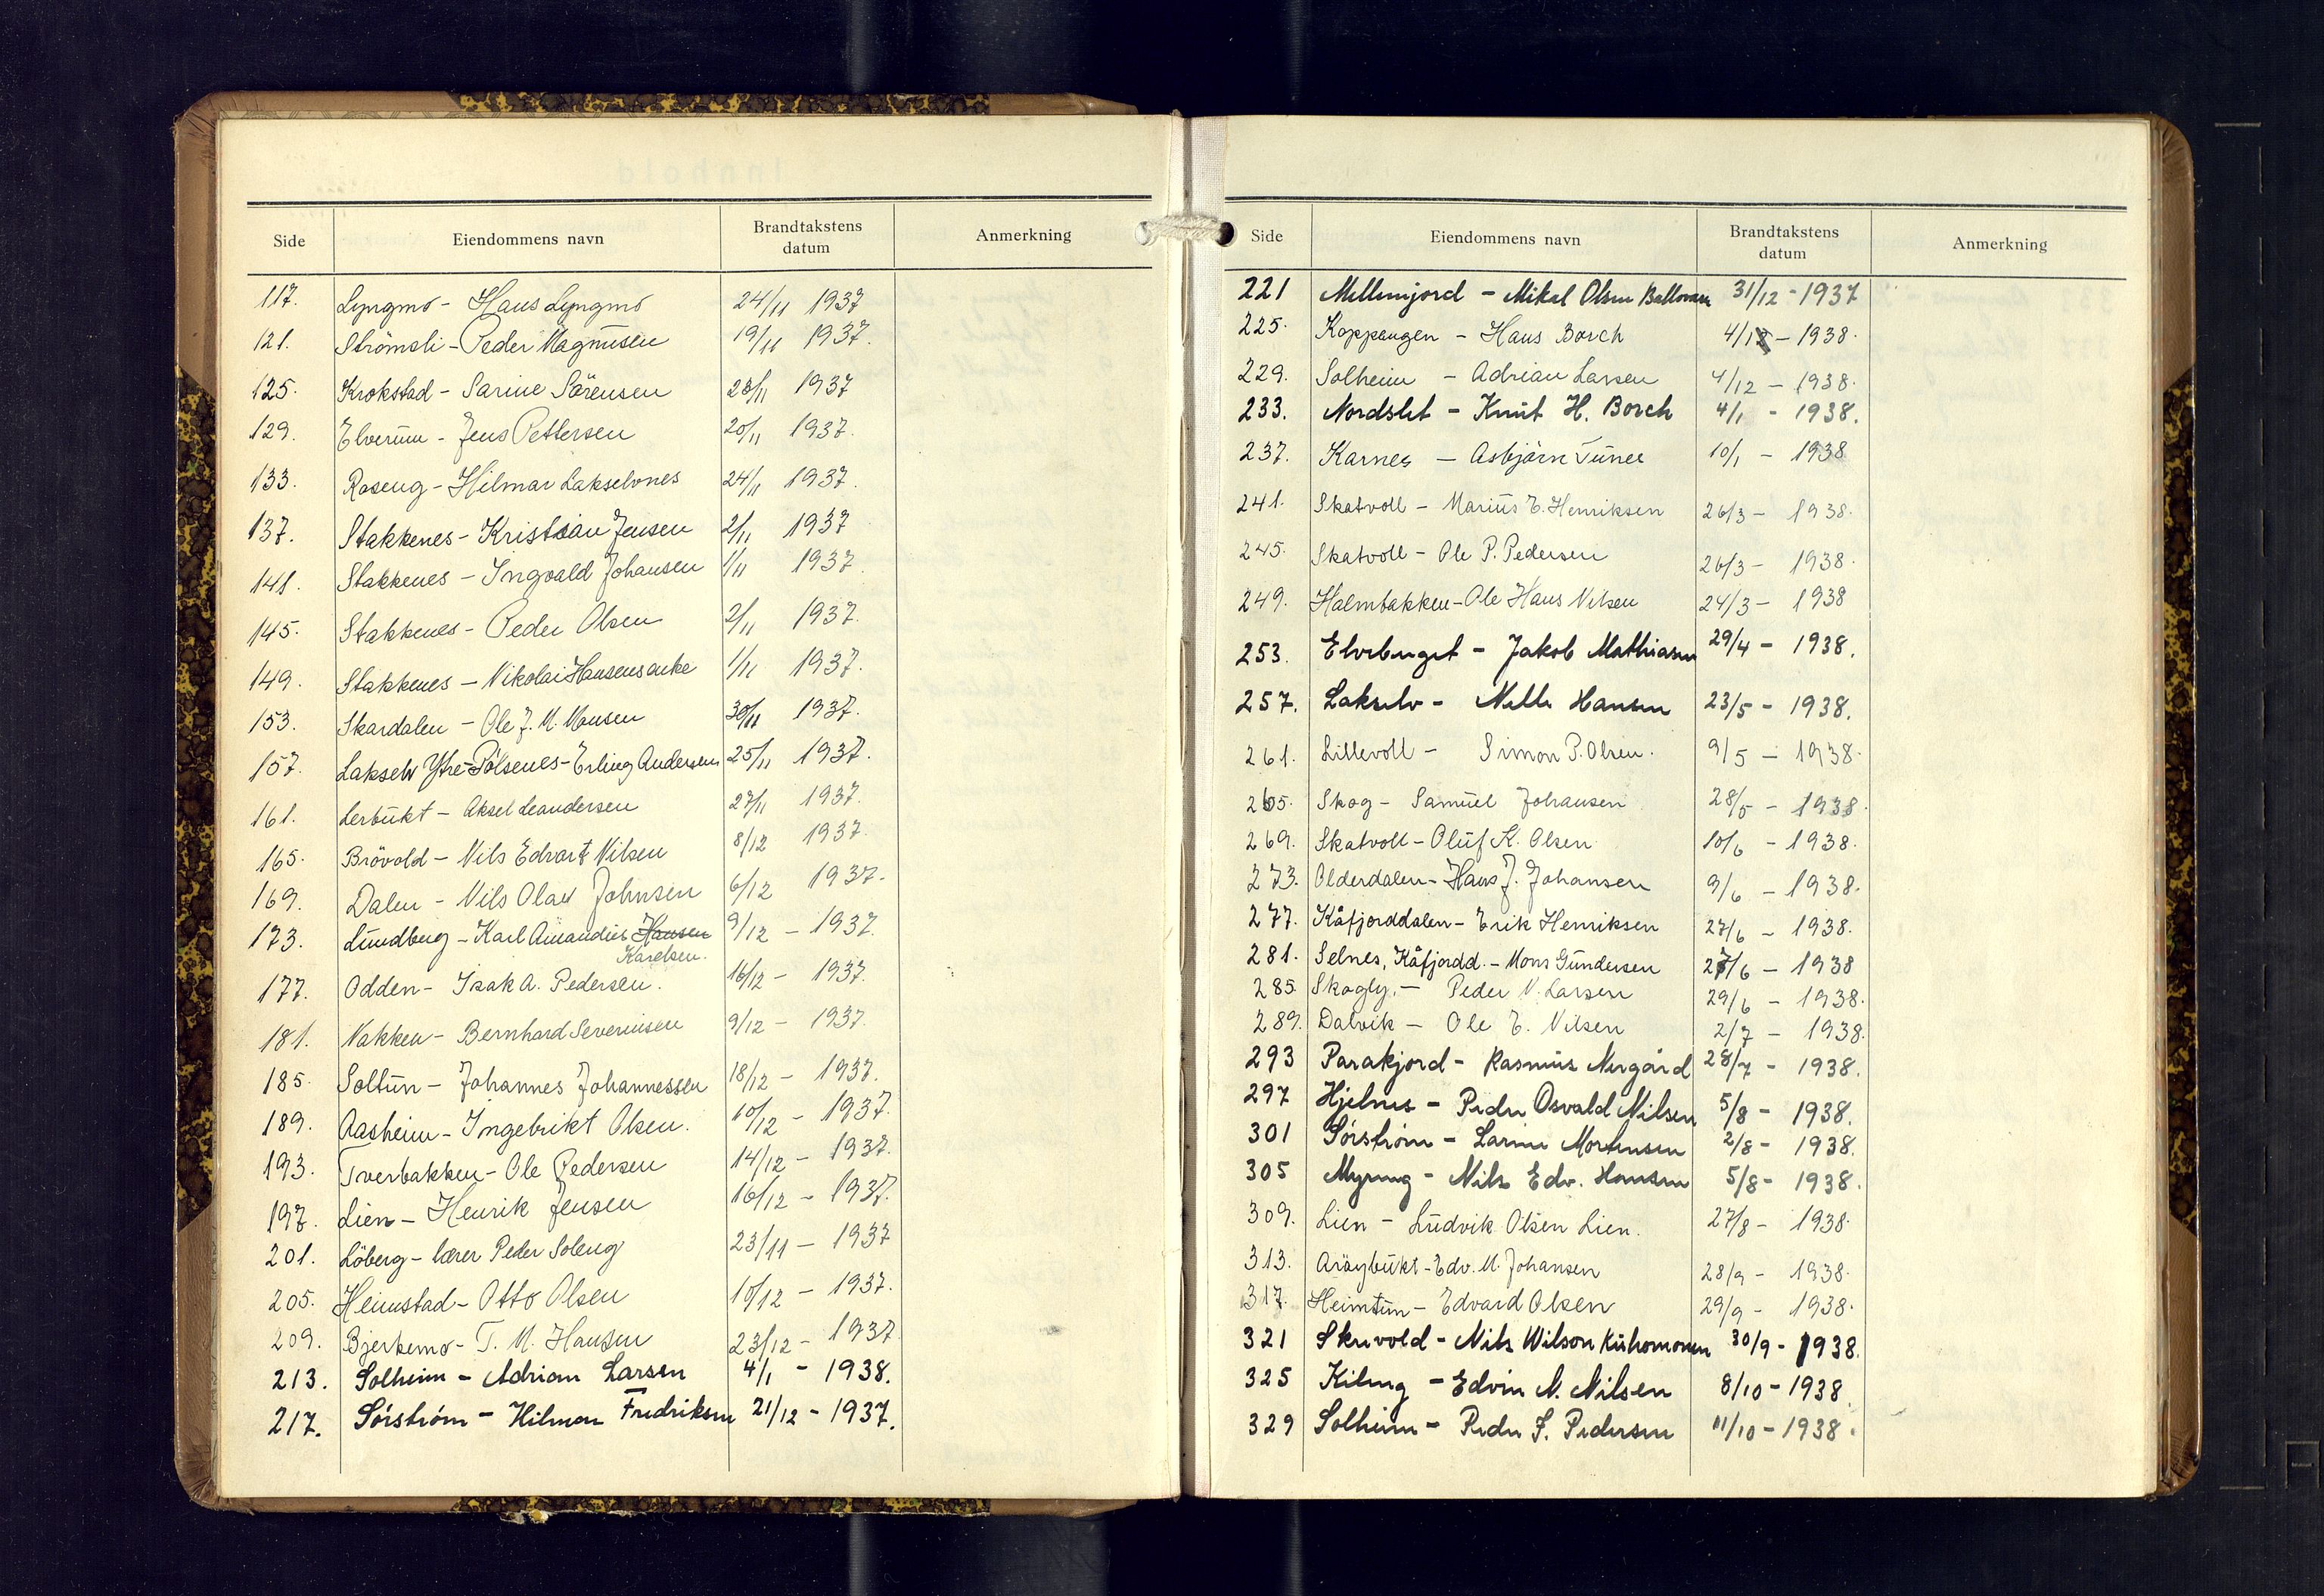 Side Eiendommens navn Brandtakstens datum Anmerkning
117. Lyngmo - Hans Lyngmo 24/11 1937
121. Strömsli - Peder Magnusen 19/11 1937.
125. Krokstad - Sarine Sörensen 23/11 1937
129. Elverum - Jens Pettersen 20/11 1937.
133. Roseng - Hilmar Lakselvnes 24/11 1937.
137. Stakkenes - Kristian Jensen 2/11 1937
141. Stakkenes - Ingvald Johansen 1/11 1937
145. Stakkenes - Peder Olsen 2/11 1937.
149. Stakkenes - Nikolai Hansens enke 1/11 1937.
153. Skardalen - Ole J. M. Monsen 30/11 1937.
157. Lakselv Ytre-Pölsenes - Erling Andersen 25/11 1937.
161. Lerbukt - Aksel Leandersen 27/11 1937.
165. Brövold - Nils Edvart Nilsen 8/12 1937.
169. Dalen - Nils Olav Johnsen 6/12 1937.
173. Lundberg - Karl Amandus Hansen 9/12 - 1937.
Karelsen.
177. Odden - Isak A. Pedersen. 16/12 - 1937.
181. Nakken - Bernhard Severinsen 9/12 - 1937.
185. Soltun - Johannes Johannessen 18/12 - 1937.
189. Aasheim - Ingebrikt Olsen. 10/12 - 1937.
193. Tverbakken - Ole Pedersen 14/12 - 1937.
197. Lien - Henrik Jensen 16/12 - 1937.
201. Löberg - lærer Peder Soleng 23/11 - 1937
205. Heimstad - Otto Olsen 10/12 - 1937.
209. Bjerkemo - T. M. Hansen 23/12 - 1937
213. Solheim - Adrian Larsen 4/1 - 1938.
217. Sörström - Hilmar Fredriksen 21/12 - 1937.
Side Eiendommens navn Brandtakstens datum Anmerkning
221 Mellemjord - Mikal Olsen Ballovarre 31/12 - 1937
225. Koppangen - Hans Borch 4/12 - 1938.
229. Solheim - Adrian Larsen 4/12 - 1938.
233. Nordslet - Knut H. Borch 4/1 - 1938.
237. Karnes - Asbjörn Tunes 10/1 - 1938
241. Skatvoll - Marius E. Henriksen 26/3 - 1938.
245. Skatvoll - Ole P. Pedersen 26/3 - 1938.
249. Halmbakken - Ole Hans Nilsen 24/3 - 1938
253. Elvebuget - Jakob Mathiasen 29/4 - 1938.
257. Lakselv - Nelle Hansen 23/5 - 1938.
261. Lillevoll - Simon P. Olsen. 9/5 - 1938.
265. Skog - Samuel Johansen 28/5 - 1938.
269. Skatvoll - Oluf K. Olsen 10/6 - 1938.
273. Olderdalen - Hans J. Johansen 9/6 - 1938.
277. Kåfjorddalen - Erik Henriksen 27/6 - 1938.
281. Selnes, Kåfjordd. - Mons Gundersen 27/6 - 1938
285. Skogly. - Peder N. Larsen 29/6 - 1938.
289. Dalvik - Ole E. Nilsen 2/7 - 1938.
293 Parakjord - Rasmus Nergård 28/7 - 1938.
297 Hjelnes - Peder Osvald Nilsen 5/8 - 1938.
301 Sörström - Larine Mortensen 2/8 - 1938.
305 Myreng - Nils Edv. Hansen 5/8 - 1938.
309. Lien - Ludvik Olsen Lien. 27/8 - 1938.
313. Aröybukt - Edv. M. Johansen 28/9 - 1938.
317. Heimtun - Edvard Olsen 29/9 - 1938.
321 Skrevold - Nils Wilson Kuhomonen 30/9 - 1938.
325 Kileng - Edvin N. Nilsen 8/10 - 1938.
329 Solheim - Peder S. Pedersen 11/10 - 1938.